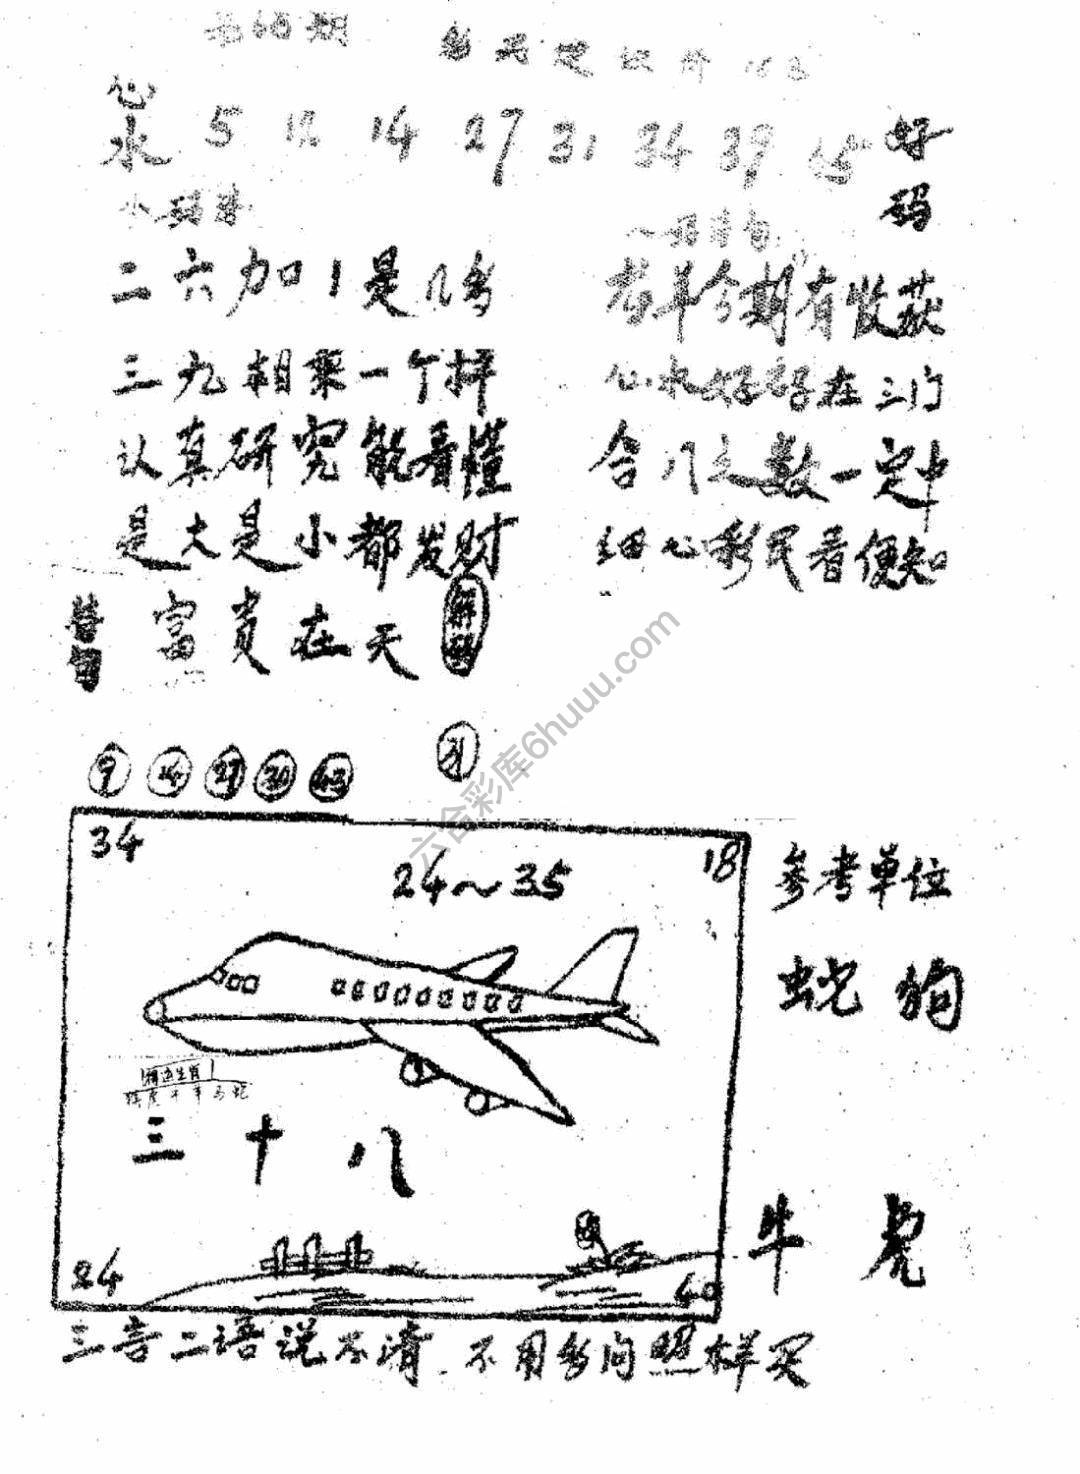 心水 5 14 27 31 34 39 好码
二六加1是几多
三九相乘一个拌
认真研究能看懂
是大是小都发财
今期有收获
心水好 在三门
合八之数一定中
细心彩民看便知
富贵在天
解码
9 27 30 43 21
34 24～35 18
参考单位
蛇狗
三十八
牛虎
24 40
三言二语说不清 不用多问照样买
六合彩库6huuu.com